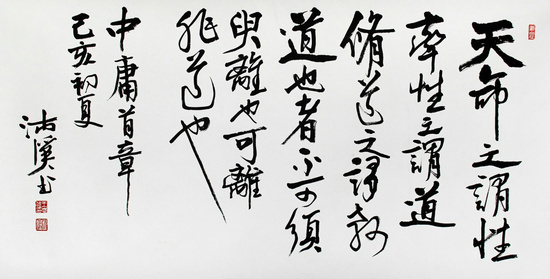 天命之謂性
率性之謂道
脩道之謂教
道也者不可須
臾離也可離
非道也
中庸首章
己亥初夏
溪书